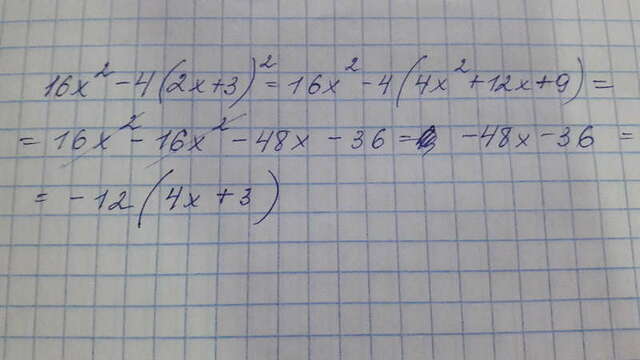 16x² - 4(2x+3)² = 16x² - 4(4x² + 12x + 9) =
= 16x² - 16x² - 48x - 36 = -48x - 36 =
= -12(4x + 3)